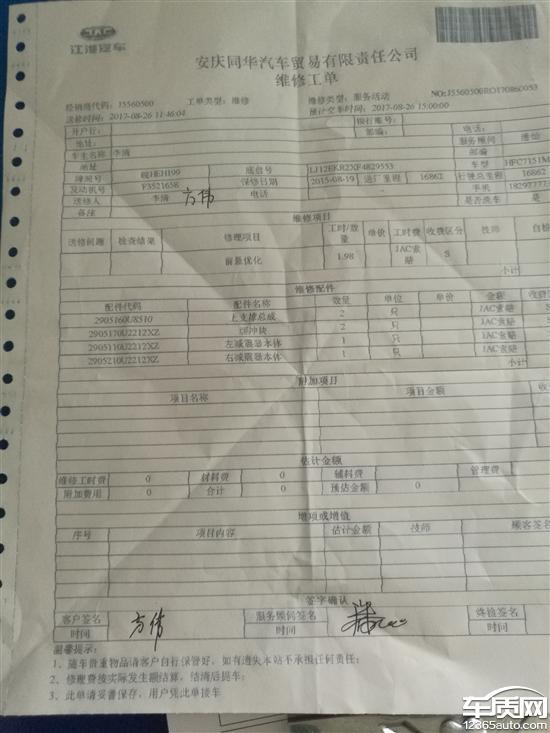 JAC
江淮汽车
安庆同华汽车贸易有限责任公司
维修工单
经销商代码: J5560500 工单类型: 维修 维修类型: 服务活动 NO:J5560500RO170860053
送修时间: 2017-08-26 11:46:04 预计交车时间: 2017-08-26 15:00:00
开户行: 银行账号: 电话:
地址: 邮编: 服务顾问
车主名称 李清 邮编
地址: 车型 HFC7151M
牌照号 皖HEH199 底盘号 LJ12EKR2XF4829553 行驶总里程 16862
发动机号 F3521658 保修日期 2015-08-19 进厂里程 16862 手机 18297777
送修人 李清 方伟 电话 是否洗车 是
备注
维修项目
送修问题 检查结果 修理项目 工时/数量 单价 工时费 收费区分 技师 自检
前悬优化 1.98 JAC索赔 S
小计
维修配件
配件代码 配件名称 数量 单位 单价 金额 收费
2905160U8510 上支撑总成 2 只 JAC索赔
2905170U2212XZ 缓冲块 2 只 JAC索赔
2905110U2212XZ 左减震器本体 1 只 JAC索赔
2905210U2212XZ 右减震器本体 1 只 JAC索赔
小计
附加项目
项目名称 项目金额
估计金额
维修工时费 0 材料费 0 辅料费 管理费
附加费用 0 合计 0 预估金额 0
增项或增值
序号 项目内容 估计金额 技师 顾客签名
签字确认
客户签名 方伟 服务顾问签名 终检签名
时间 时间 时间
温馨提示:
1、随车贵重物品请客户自行保管好, 如有遗失本站不承担任何责任;
2、修理费按实际发生额结算, 结清后提车;
3、此单请妥善保存, 用户凭此单接车
车质网
12365auto.com